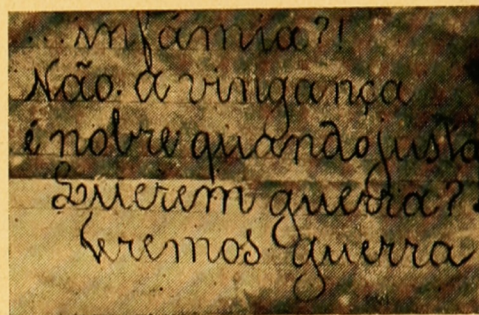 ... infámia?!
Não. a vingança
é nobre quando justa
Querem guerra?
Teremos guerra